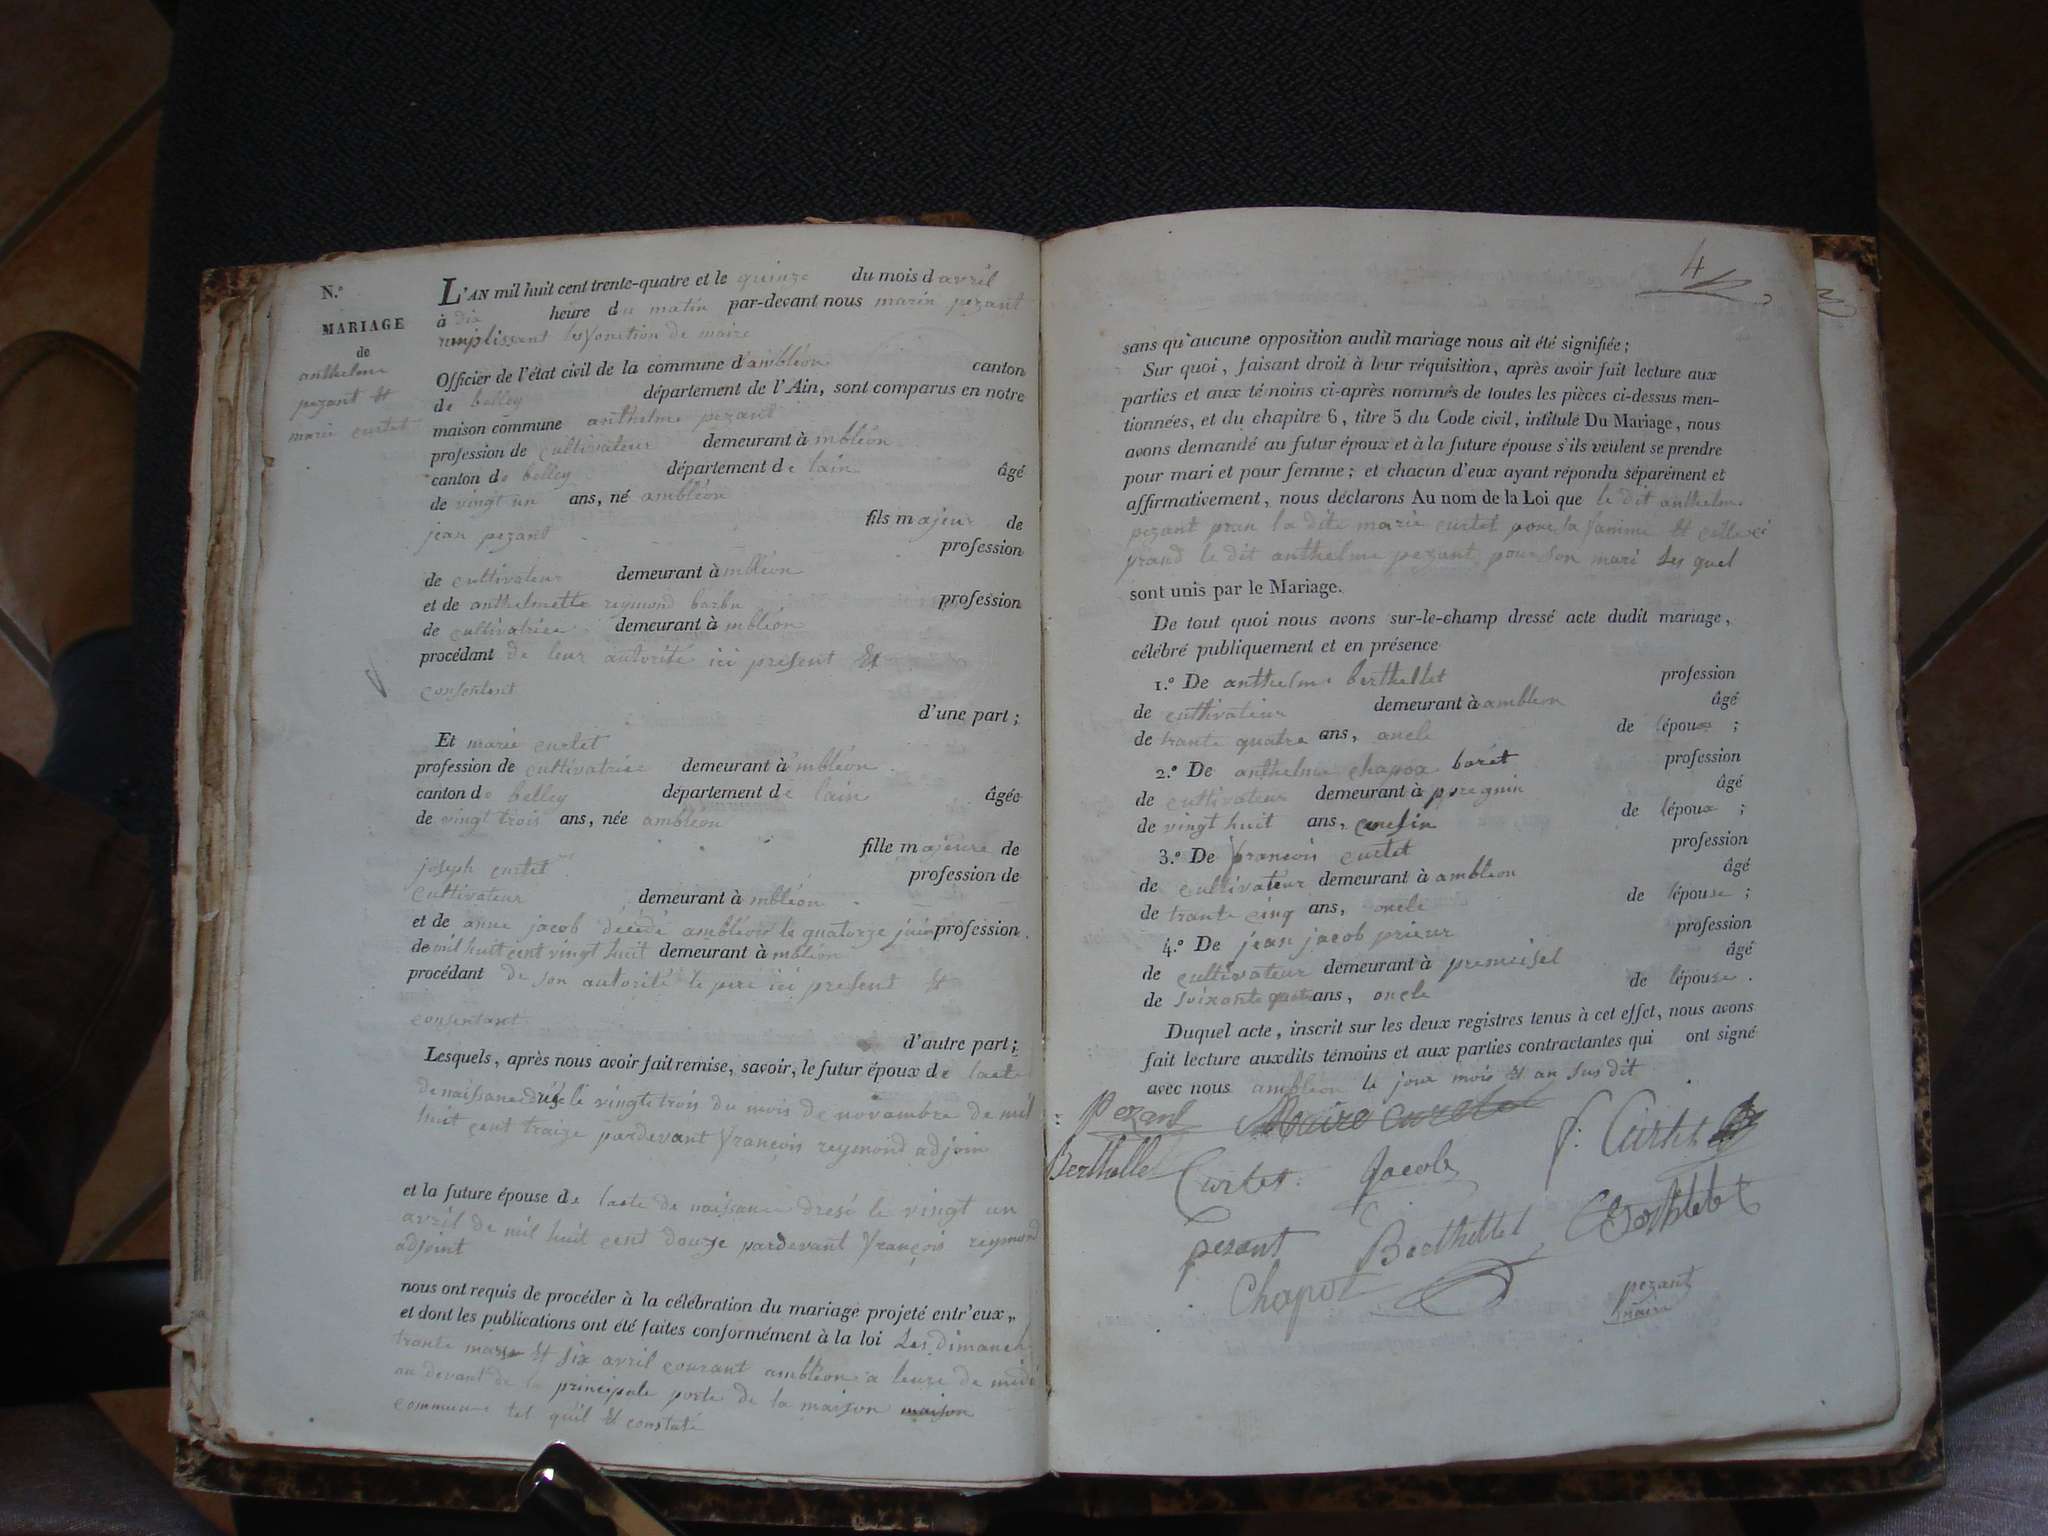 N.°
MARIAGE
de
anthelme
pezant &
marie curtet
L'AN mil huit cent trente-quatre et le quinze du mois d avril
à dix heure du matin par-devant nous marin pezant
remplissant les fonction de maire
Officier de l'état civil de la commune d'ambléon canton
de belley département de l'Ain, sont comparus en notre
maison commune anthelme pezant
profession de cultivateur demeurant à mbléon
canton de belley département de lain âgé
de vingt un ans, né ambléon
fils majeur de
jean pezant profession
de cultivateur demeurant à mbléon
et de anthelmette reymond barbu profession
de cultivatrice demeurant à mbléon
procédant de leur autorité ici present &
consentent
d'une part ;
Et marie curtet
profession de cultivatrice demeurant à mbléon
canton de belley département de lain âgée
de vingt trois ans, née ambléon
fille majeure de
joseph curtet profession de
cultivateur demeurant à mbléon
et de anne jacob décédé ambléon le quatorze juin profession
de mil huit cent vingt huit demeurant à mbléon
procédant de son autorité le pere ici present &
consentant
d'autre part ;
Lesquels, après nous avoir fait remise, savoir, le futur époux de lacte
de naissance le vingt trois du mois de novembre de mil
huit cent traize pardevant françois reymond adjoin
et la future épouse de lacte de naissance dresé le vingt un
avril de mil huit cent douze pardevant françois reymond
adjoint
nous ont requis de procéder à la célébration du mariage projeté entr'eux,
et dont les publications ont été faites conformément à la loi Les dimanch
trante mars & six avril courant ambléon a leure de midi
au devant de la principale porte de la maison maison
commune tel quil & constaté
4
sans qu'aucune opposition audit mariage nous ait été signifiée ;
Sur quoi, faisant droit à leur réquisition, après avoir fait lecture aux
parties et aux témoins ci-après nommés de toutes les pièces ci-dessus men-
tionnées, et du chapitre 6, titre 5 du Code civil, intitulé Du Mariage, nous
avons demandé au futur époux et à la future épouse s'ils veulent se prendre
pour mari et pour femme ; et chacun d'eux ayant répondu séparément et
affirmativement, nous déclarons Au nom de la Loi que le dit anthelme
pezant pran la dite marie curtet pour sa famme & celle ci
prand le dit anthelme pezant pour son mari les quel
sont unis par le Mariage.
De tout quoi nous avons sur-le-champ dressé acte dudit mariage,
célébré publiquement et en présence
1.° De anthelme berthellet profession
de cultivateur demeurant à ambléon âgé
de trante quatre ans, oncle de lépoux ;
2.° De anthelme chapot borét profession
de cultivateur demeurant à âgé
de vingt huit ans, cousin de lépoux ;
3.° De françois curtet profession
de cultivateur demeurant à ambléon âgé
de trante cinq ans, oncle de lépouse ;
4.° De jean jacob prieur profession
de cultivateur demeurant à premeisel âgé
de soixante ans, oncle de lépouse .
Duquel acte, inscrit sur les deux registres tenus à cet effet, nous avons
fait lecture auxdits témoins et aux parties contractantes qui ont signé
avec nous ambléon le jour mois & an sus dit
Pezant Marie curtet f. Curtet
Berthellet Curtet Jacob
pezant Berthellet
Chapot
pezant
maire